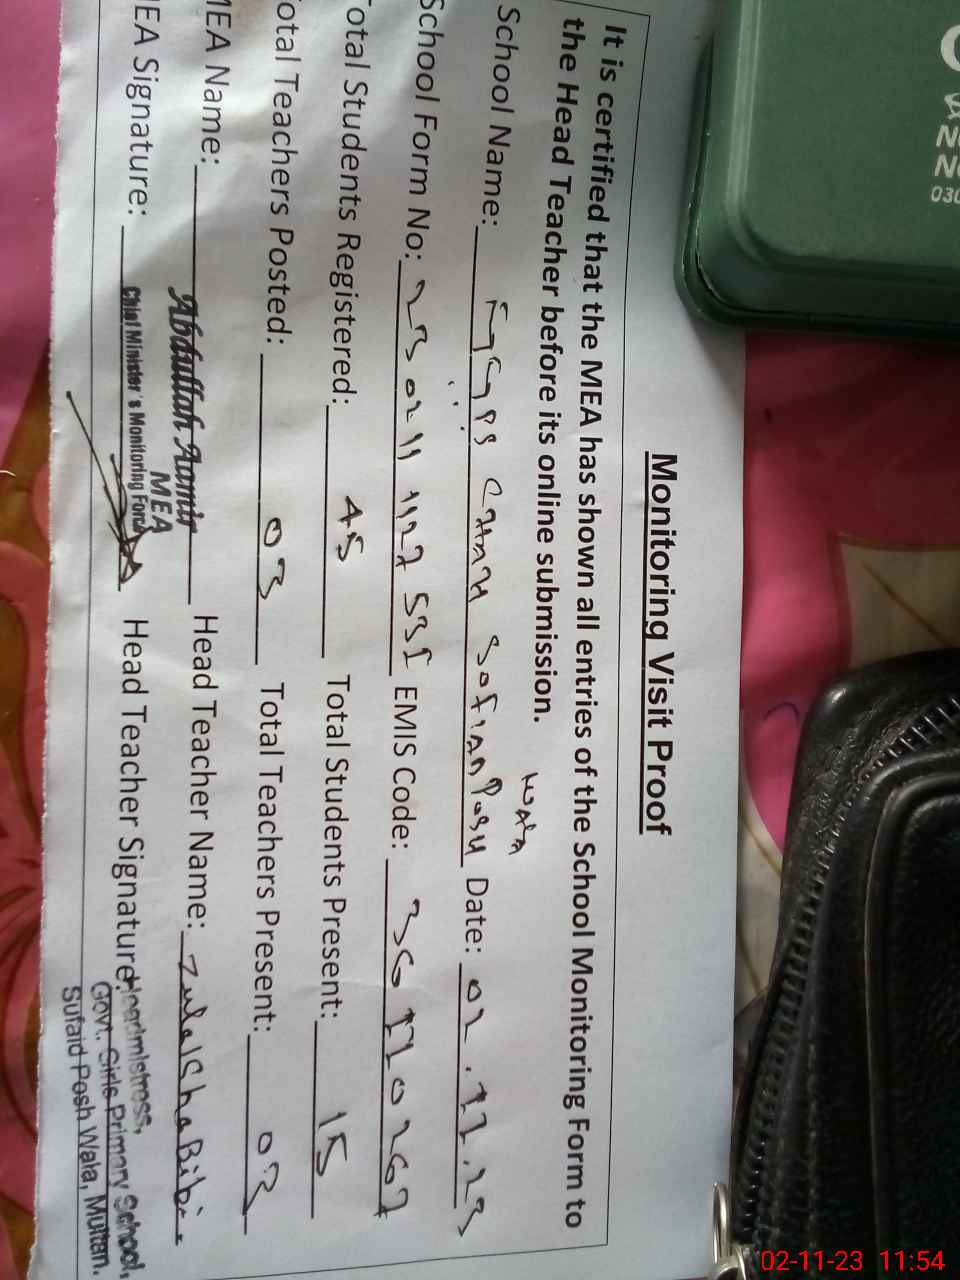 Monitoring Visit Proof
It is certified that the MEA has shown all entries of the School Monitoring Form to
the Head Teacher before its online submission.
wala
School Name: GGPS Chah Sofian Posh Date: 02.11.23
School Form No: EMIS Code: 36110267
Total Students Registered: 45 Total Students Present: 15
Total Teachers Posted: 03 Total Teachers Present: 03
MEA Name: Abdullah Aamir Head Teacher Name: Zulaicha Bibi.
MEA
MEA Signature: Chief Minister's Monitoring Force Head Teacher Signature: Headmistress,
Govt. Girls Primary School,
Sufaid Posh Wala, Multan.
030
02-11-23 11:54